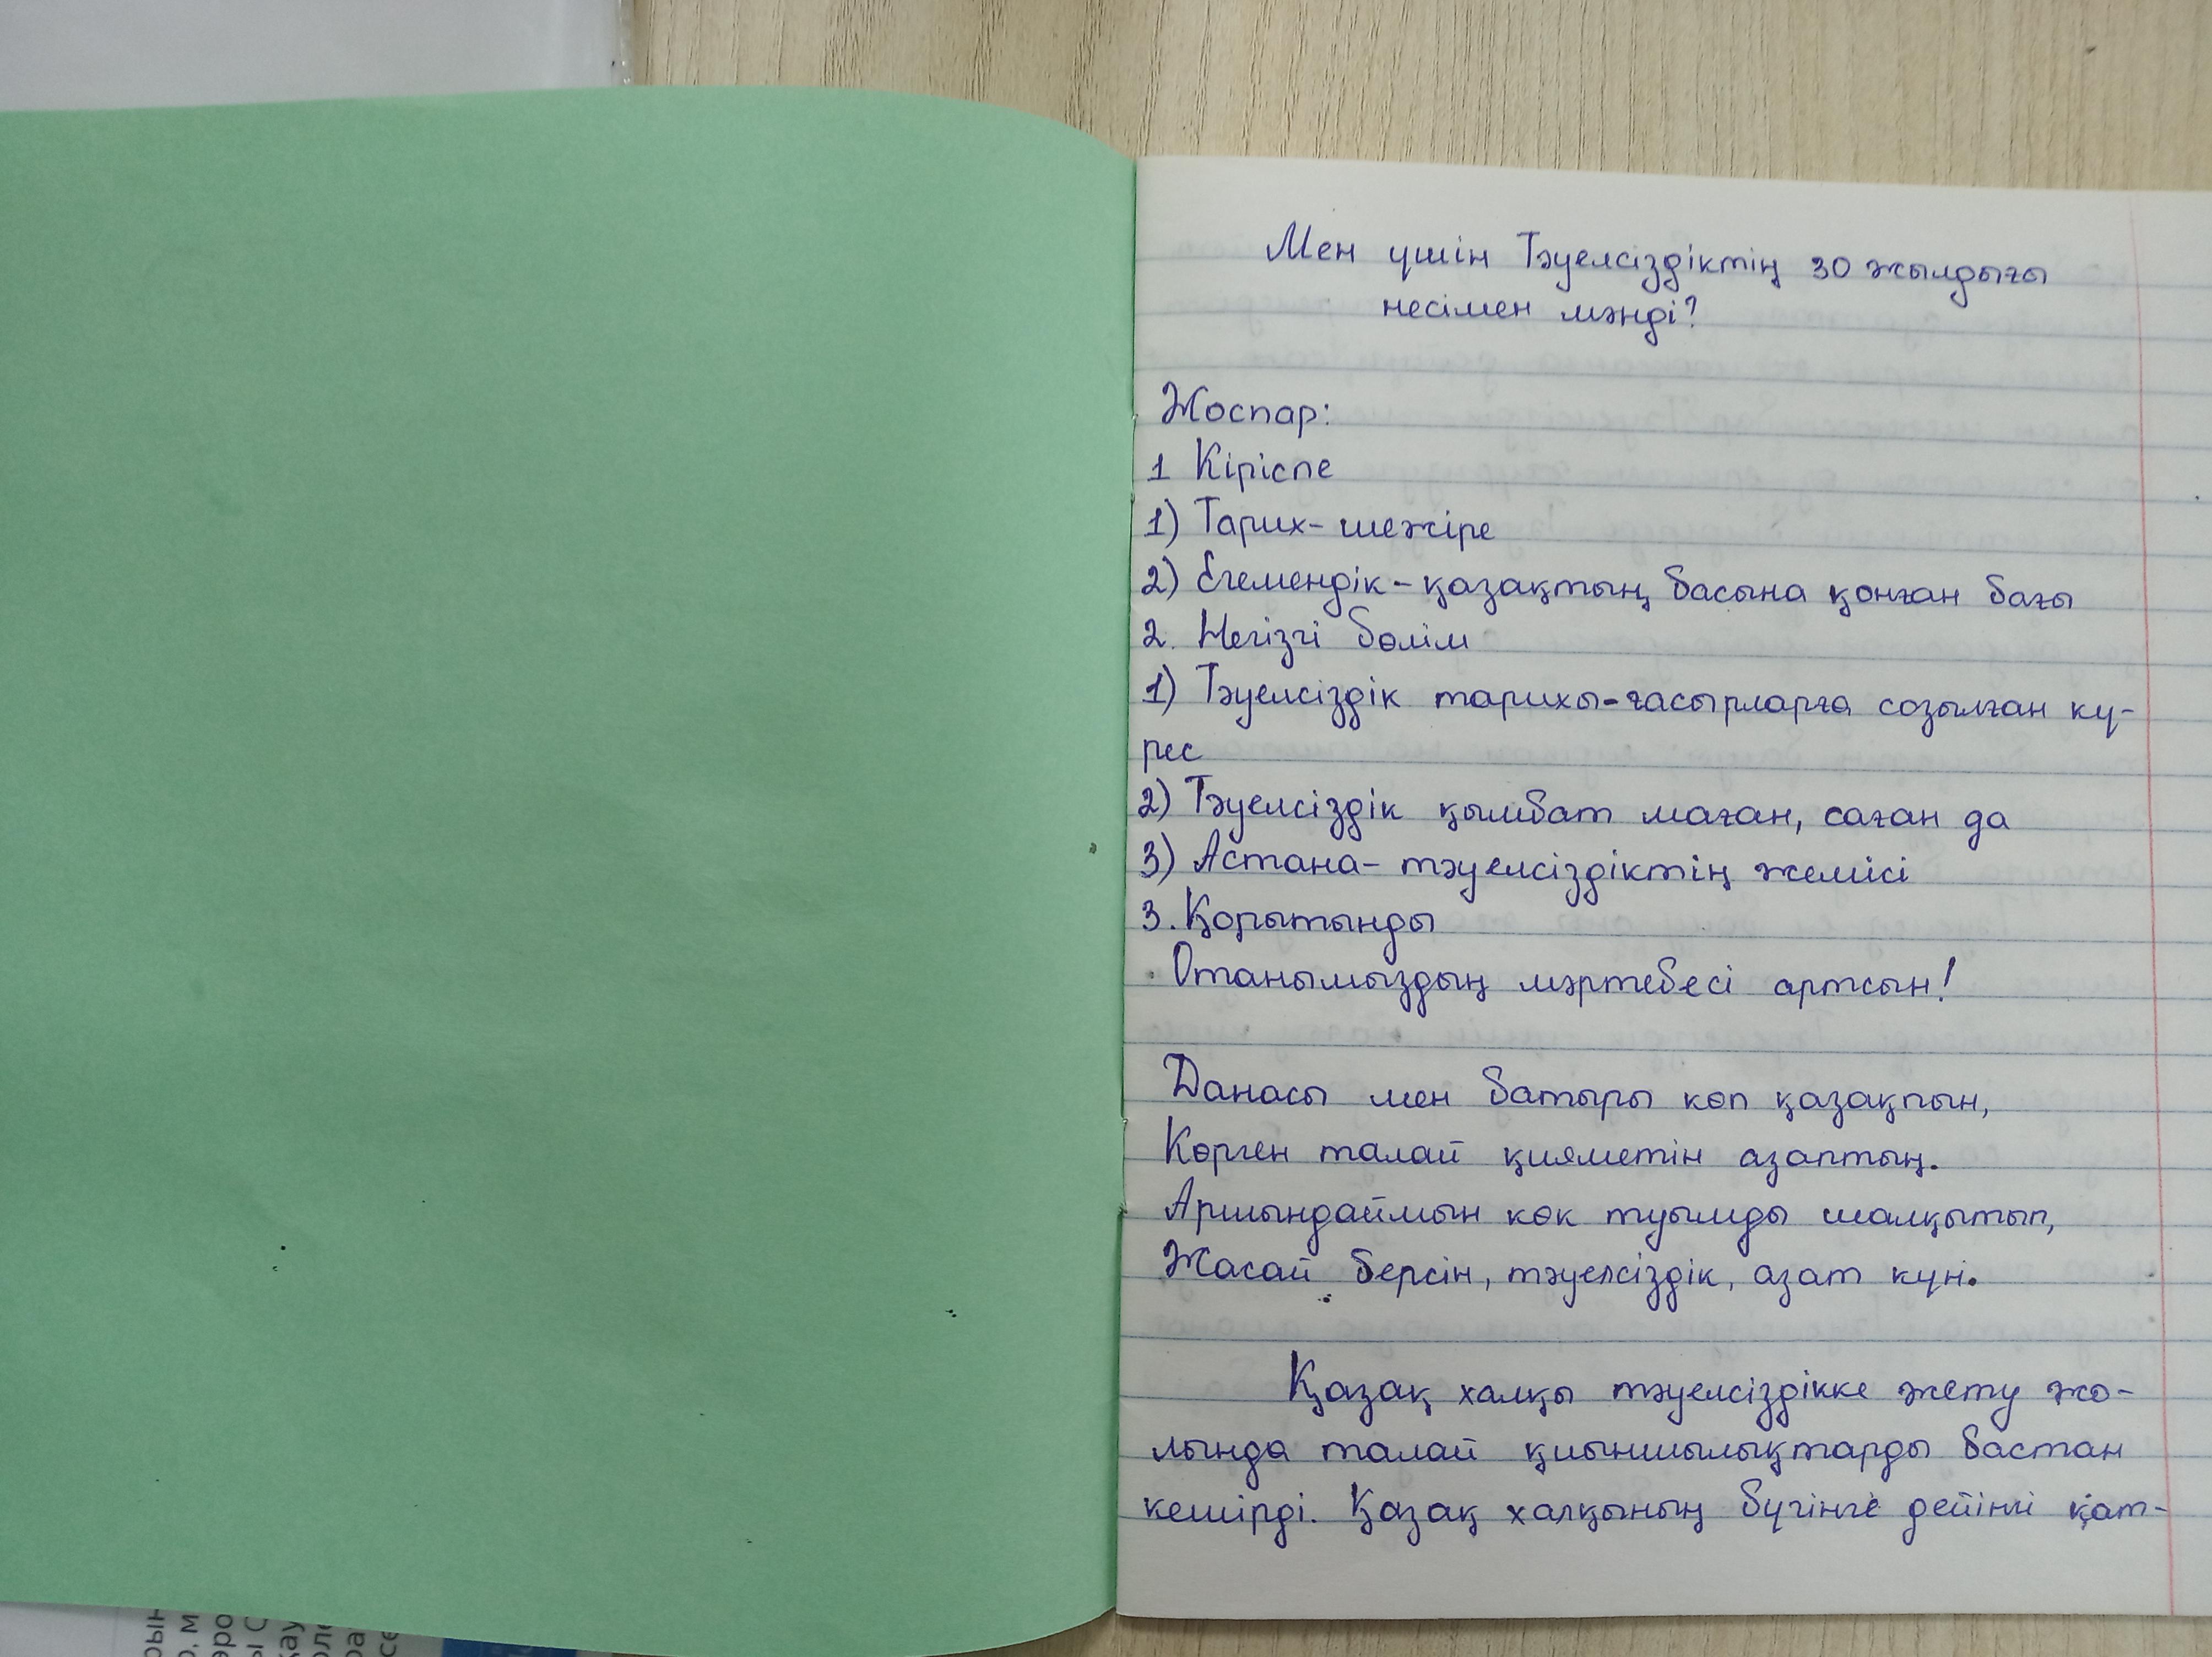 Мен үшін Тәуелсіздіктің 30 жылдығы
несімен мәнді?
Жоспар:
1 Кіріспе
1) Тарих- шежіре
2) Егемендік - қазақтың басына қонған бағы
2. Негізгі бөлім
1) Тәуелсіздік тарихы-ғасырларға созылған кү-
рес
2) Тәуелсіздік қымбат маған, саған да
3) Астана- тәуелсіздіктің жемісі
3. Қорытынды
Отанымыздың мәртебесі артсын!
Данасы мен батыры көп қазақпын,
Көрген талай қияметін азаптың.
Аршындаймын көк туымды шалқытып,
Жасай берсін, тәуелсіздік, азат күн.
Қазақ халқы тәуелсіздікке жету жо-
лында талай қиыншылықтарды бастан
кешірді. Қазақ халқының бүгінге дейінгі қат-